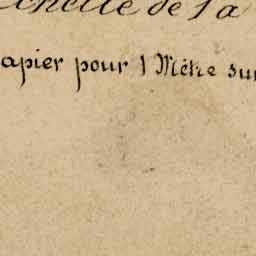 chelle de la
apier pour 1 Mètre sur